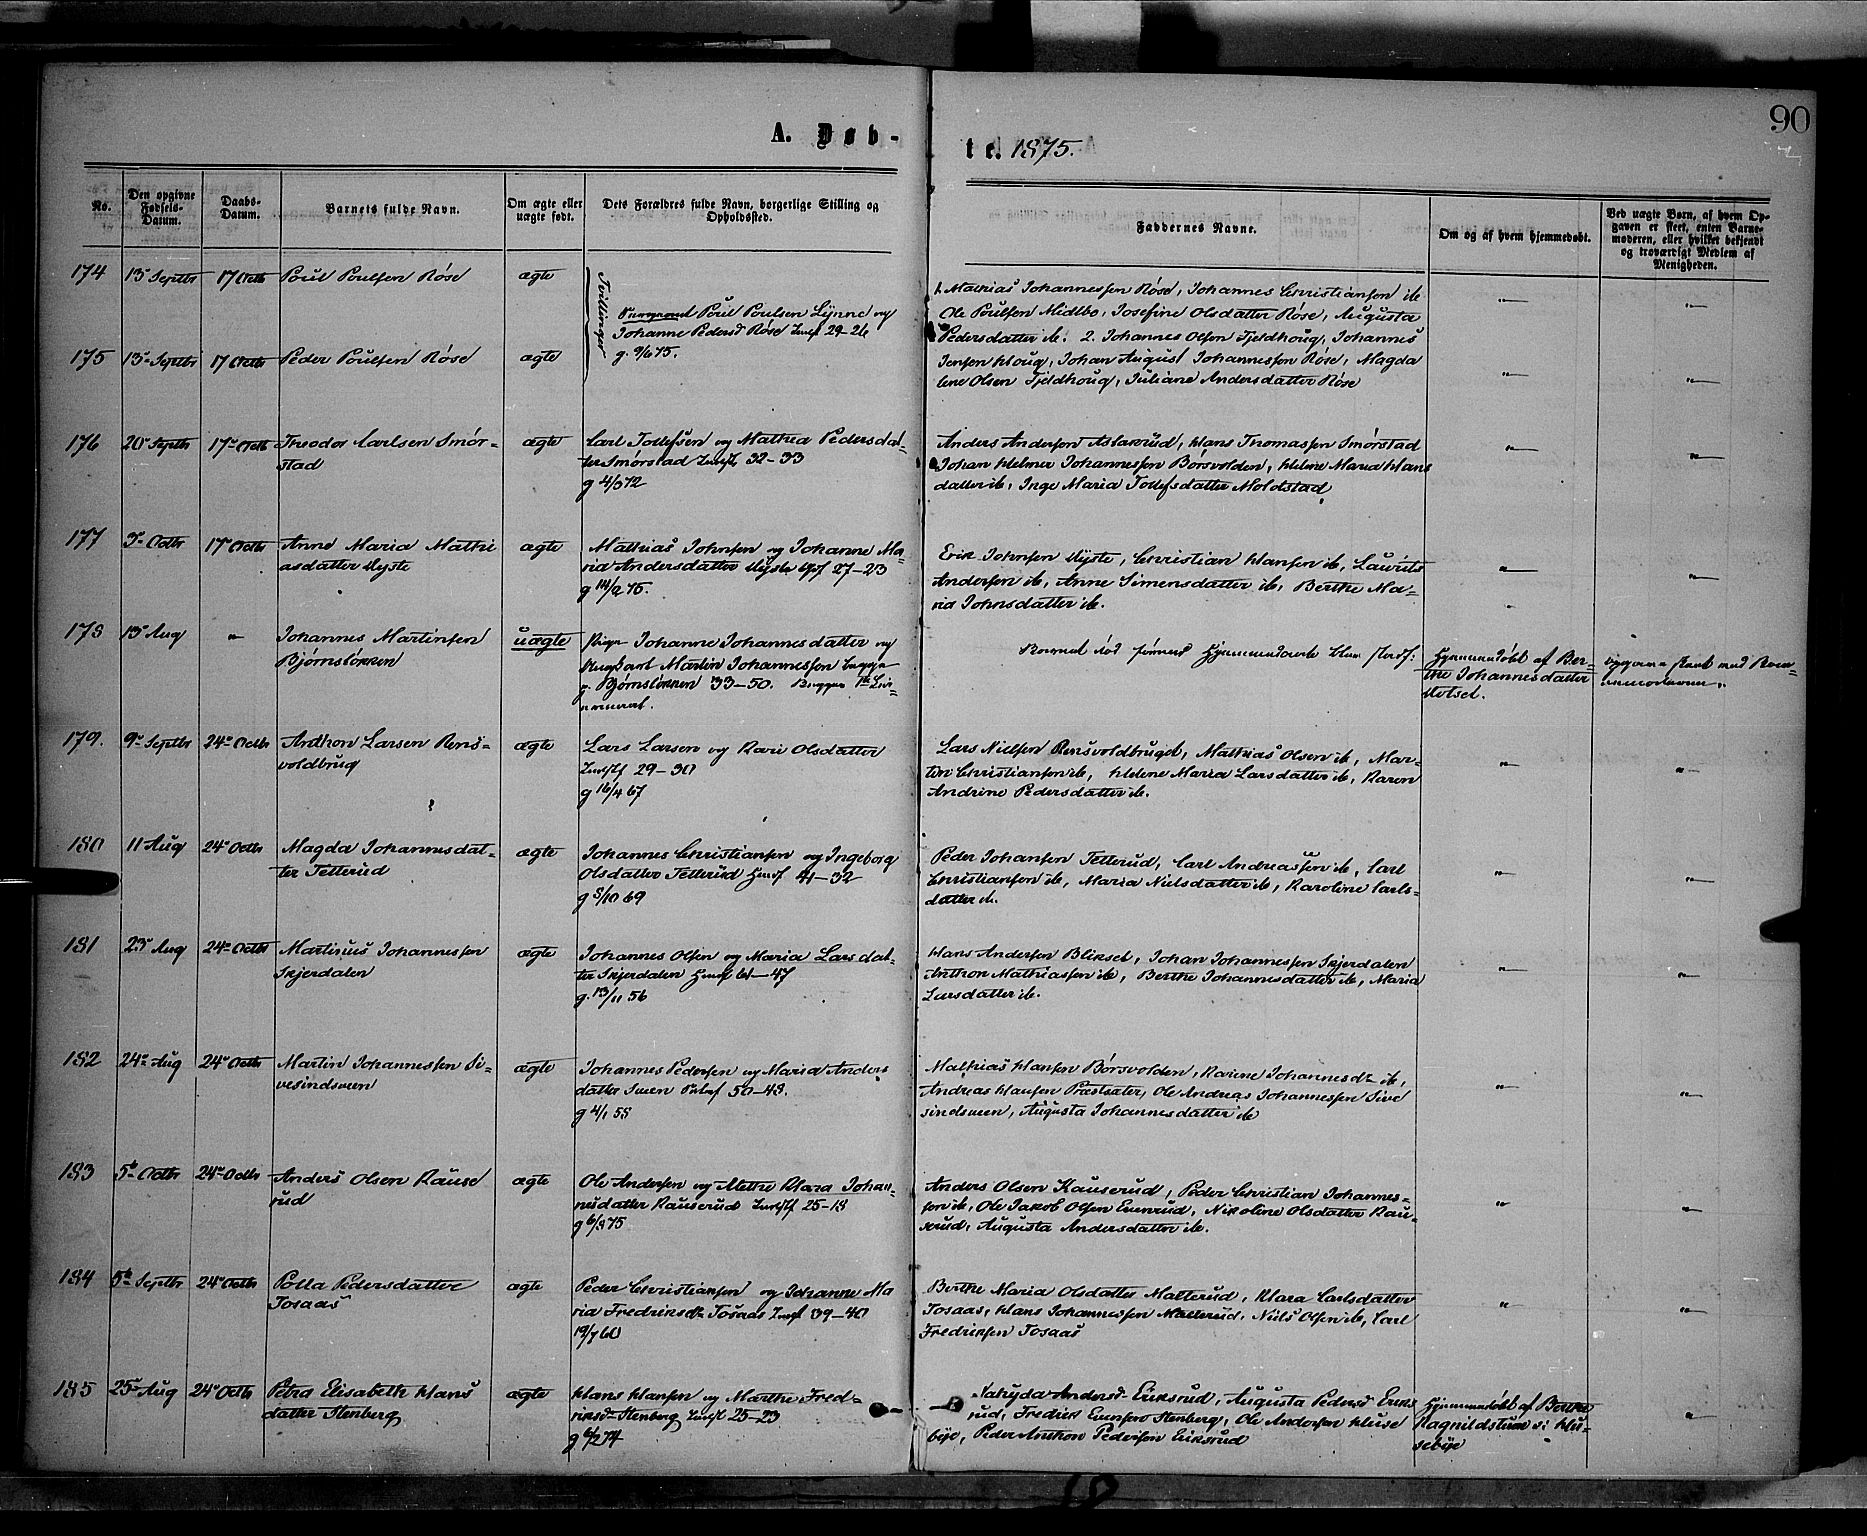 90
A. Døb-
te. 1875.
No.
Den opgivne Fødsels-Datum.
Daabs-Datum.
Barnets fulde Navn.
Om ægte eller uægte født.
Dets Forældres fulde Navn, borgerlige Stilling og Opholdssted.
Faddernes Navne.
Om og af hvem hjemmedøbt.
Ved uægte Børn, af hvem Opgaven er skeet, enten Barnemoderen, eller hvilket bekjendt og troværdigt Medlem af Menigheden.
174 13 Septbr 17 Octb Poul Poulsen Røse ægte
Tvillinger
Poul Poulsen Lynne og
Johanne Pedersd Røse Indst 29-26
g. 9/6 75.
1. Mathias Johannessen Røse, Johannes Christiansen ib
Ole Poulsen Midlbo, Josefine Olsdatter Røse, Augusta
Pedersdatter ib. 2. Johannes Olsen Fjeldhoug, Johannes
Jensen Houg, Johan August Johannessen Røse, Magda
lene Olsen Fjeldhoug, Juliane Andersdatter Røse
175 13 Septbr 17 Octbr Peder Poulsen Røse ægte
176 20 Septbr 17 Octb Theodor Carlsen Smør-
stad
ægte
Carl Tollefsen og Mathea Pedersdat-
ter Smørstad Indst 32-33
g 4/3 72
Anders Andersen Aslakrud, Hans Thomassen Smørstad
Johan Helmer Johannessen Børsvolden, Helene Maria Hans
datter ib, Inge Maria Tollefsdatter Moldstad
177 3 Octbr 17 Octbr Anne Maria Mathi
asdatter Myste
ægte
Mathias Johnsen og Johanne Ma-
ria Andersdatter Myste 27-23
g 14/2 75.
Erik Johnsen Myste, Christian Hansen ib, Laurits
Andersen ib, Anne Simensdatter ib, Berthe Ma-
ria Johnsdatter ib.
178 13 Aug " Johannes Martinsen
Bjørnsløkken
uægte
Pige Johanne Johannesdatter og
Ungkarl Martin Johannessen begge
Bjørnsløkken 33-50. Begges 1ste Lei-
ermaal.
død førend Hjemmedaab blev
Hjemmedøbt af Ber-
the Johannesdatter
med Barn
179. 9 Septbr 24 Octbr Anthon Larsen Rens-
voldbrug
ægte
Lars Larsen og Kari Olsdatter
Indst 29-30
g 16/4 67
Lars Nielsen Rensvoldbruget, Mathias Olsen ib, Mar-
tin Christiansen ib, Helene Maria Larsdatter ib, Karen
Andrine Pedersdatter ib.
180 11 Aug 24 Octbr Magda Johannesdat-
ter Tetterud
ægte
Johannes Christiansen og Ingeborg
Olsdatter Tetterud Husf 41-32
g 8/10 69
Peder Johansen Tetterud, Carl Andreassen ib, Carl
Christiansen ib, Maria Nielsdatter ib, Karoline Carls-
datter ib.
181 23 Aug 24 Octbr Martinus Johannessen
Skjerdalen
ægte
Johannes Olsen og Maria Larsdat-
ter Skjerdalen Husf 41-47
g. 13/11 56
Hans Andersen Blikset, Johan Johannessen Skjerdalen
Anthon Mathiassen ib, Berthe Johannesdatter ib, Maria
Larsdatter ib.
182 24 Aug 24 Octbr Martin Johannessen Si-
vesindsveen
ægte
Johannes Pedersen og Maria Anders
datter Sveen 50-43.
g 4/1 55
Mathias Hansen Børsvolden, Karine Johannesdr ib,
Andreas Hansen Præstsæter, Ole Andreas Johannessen Sive
sindsveen, Augusta Johannesdatter ib
183 5 Octbr 24 Octbr Anders Olsen Kause
rud
ægte
Ole Andersen og Mathe Klara Johan-
nesdatter Kauserud Indst 25-18
g 6/3 75
Anders Olsen Kauserud, Peder Christian Johannes-
sen ib, Ole Jakob Olsen Evenrud, Nikoline Olsdatter Kau-
serud, Augusta Andersdatter ib.
184 5 Septbr 24 Octbr Polla Pedersdatter
Tosaas
ægte
Peder Christiansen og Johanne Ma
ria Fredriksdr Tosaas Indst 39-40
19/7 60
Berthe Maria Olsdatter Malterud, Klara Carlsdatter
Tosaas, Hans Johannessen Malterud, Niels Olsen ib, Carl
Fredriksen Tosaas
185 25 Aug 24 Octbr Petra Elisabeth Hans
datter Stenberg
ægte
Hans Hansen og Marthe Fred-
riksd Stenberg Indst 25-23
g 6/2 74
Andersd Eriksrud, Augusta Pedersd Eriks
rud, Fredrik Evensen Stenberg, Ole Andersen Huse
bye, Peder Anthon Pedersen Eriksrud
Hjemmedøbt af Berthe
Ragnildstuen i Hu-
sebye